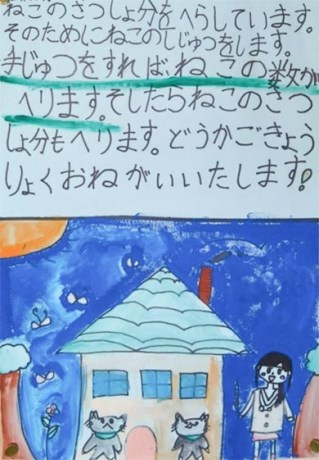 ねこのさつしょ分をへらしています。
そのためにねこのしじゅつをします。
手じゅつをすれば、ねこの数が
へります。そしたらねこのさつ
しょ分もへります。どうかごきょう
りょくおねがいいたします!